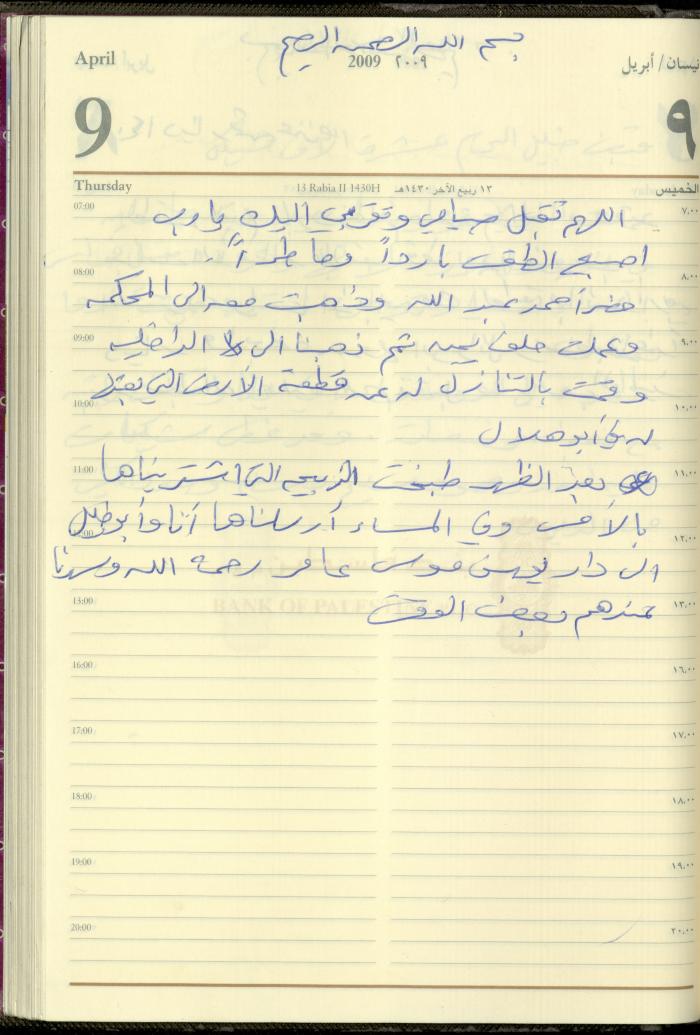 بسم الله الرحمن الرحيم
April
2009 ٢٠٠٩
نيسان/أبريل
9
٩
Thursday
13 Rabia II 1430H
١٣ ربيع الآخر ١٤٣٠هـ
الخميس
07:00 اللهم تقبل صيامي وتقربي اليك يارب ٧،٠٠
اصبح الطقس بارداً وماطراً.
08:00 ٨،٠٠
حضر أحمد عبد الله وذهبت معه الى المحكمة
09:00 وعملت حلف يمين ثم ذهبنا الى الداخلية ٩،٠٠
وقمت بالتنازل له عن قطعة الأرض التي بعتها
10:00 ١٠،٠٠
له في أبو هلال
11:00 بعد الظهر طبخت الذبيحة التي اشتريناها ١١،٠٠
بالأمس وفي المساء أرسلناها أنا وأبو
١٢،٠٠
الى دار يونس موسى عامر رحمه الله وسهرنا
13:00 عندهم بعض الوقت ١٣،٠٠
BANK OF PALESTINE
16:00 ١٦،٠٠
17:00 ١٧،٠٠
18:00 ١٨،٠٠
19:00 ١٩،٠٠
20:00 ٢٠،٠٠